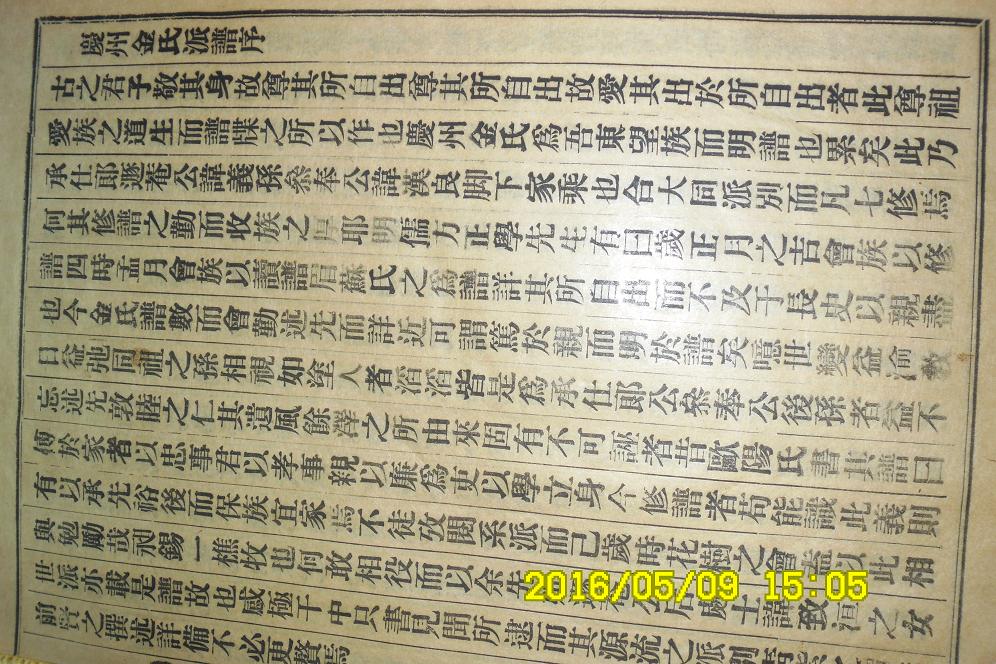 慶州金氏派譜序
古之君子敬其身故尊其所自出尊其所自出故愛其出於所自出者此尊祖
愛族之道生而譜牒之所以作也慶州金氏爲吾東望族而明譜也累矣此乃
承仕郞遯菴公諱義孫叅奉公諱漢良脚下家乘也合大同派別而凡七修焉
何其修譜之勤而收族之厚耶明儒方正學先生有曰歲正月之吉會族以修
譜四時孟月會族以讀譜眉蘇氏之爲譜詳其所自出而不及于長史以親盡
也今金氏譜數而會勤述先而詳近可謂篤於親而明於譜矣噫世變益渝敎
日益弛同祖之孫相視如塗人者滔滔皆是爲承仕郞公叅奉公後孫者益不
忘述先敦睦之仁其遺風餘澤之所由來固有不可誣者昔歐陽氏書其譜曰
傳於家者以忠事君以孝事親以廉爲吏以學立身今修譜者苟能識此義則
有以承先裕後而保族宜家焉不徒攷閱系派而已歲時花樹之會盍以此相
與勉勵哉昶錫一樵牧也何敢相役而以余先 處士諱致洹之女
世派亦載是譜故也感極于中只書見聞所逮而其源流之派別
前賢之撰述詳備不必更贅焉
2016/05/09 15:05